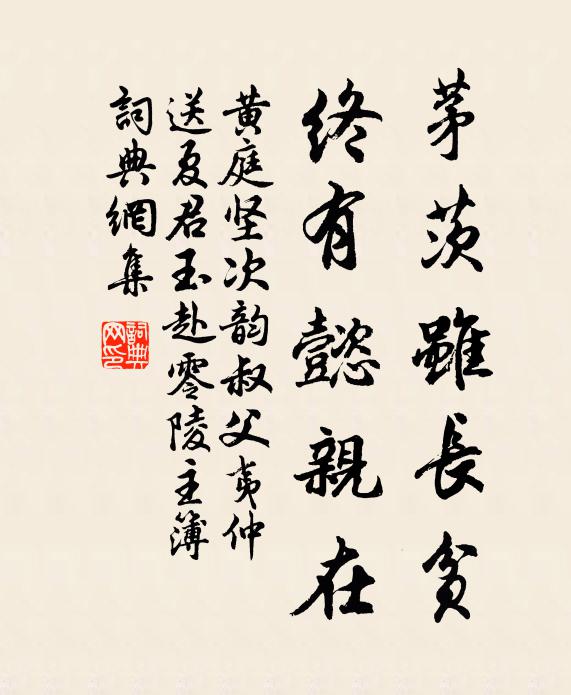 茅茨雖長貧
終有懿親在
黄庭坚次韵叔父夷仲
送夏君玉赴零陵主簿
詞典網集
詞典網印